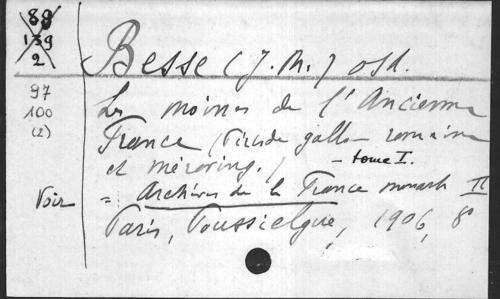 89
139
2
Besse (J. M.) osb.
97
100
(2)
Les moines de l'Ancienne
France (Période gallo-romaine
et méroving.) - tome I.
Voir
= Archives de la France monast II
Paris, Poussielgue, 1906, 8°